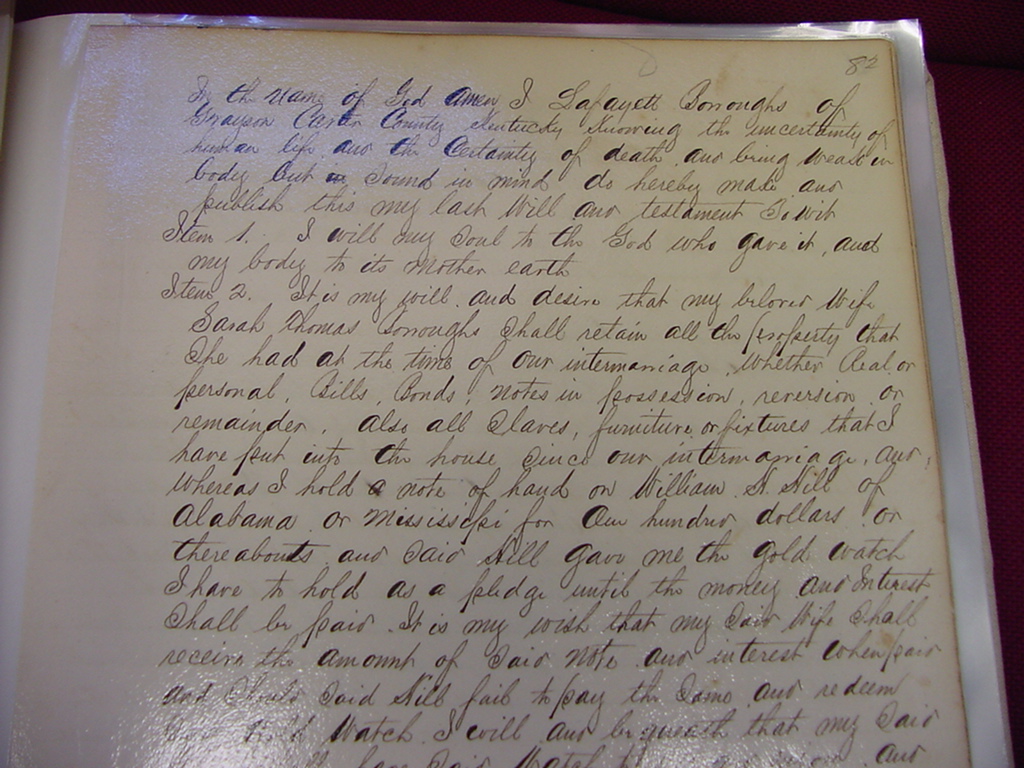 82
In the name of God Amen I Lafayett Borroughs of
Grayson Carter County Kentucky Knowing the uncertainty of
human life and the Certainty of death and being weak in
body but in Sound in mind do hereby make and
publish this my last Will and testament To wit
Item 1. I will my Soul to the God who gave it, and
my body to its Mother earth
Item 2. It is my will and desire that my beloved Wife
Sarah Thomas Borroughs Shall retain all the property that
She had at the time of our intermarriage, whether Real or
personal, Bills, Bonds, notes in possession, reversion or
remainder. Also all Slaves, furniture or fixtures that I
have put into the house Since our intermarriage, and,
Whereas I hold a note of hand on William H. Hill of
Alabama or Mississipi for One hundred dollars or
thereabouts and Said Hill gave me the gold watch
I have to hold as a pledge until the money and Interest
Shall be paid. It is my wish that my Said Wife Shall
receive the amount of Said Note and interest when paid
and Should Said Hill fail to pay the Same and redeem
Gold Watch I will and bequeath that my Said
have Said Watch and